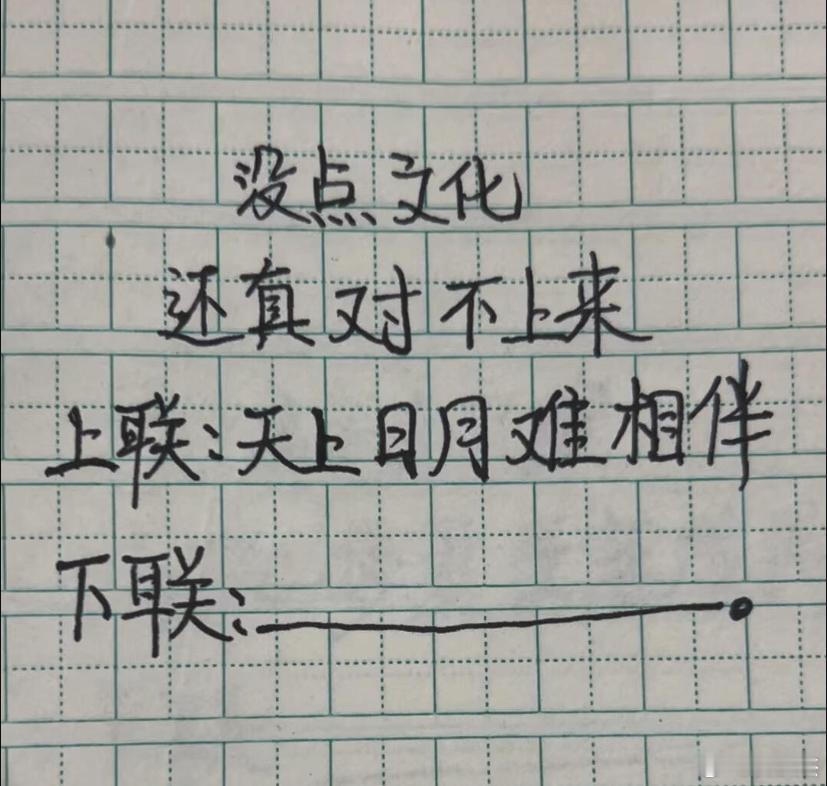 没点文化
还真对不上来
上联:天上日月难相伴
下联: